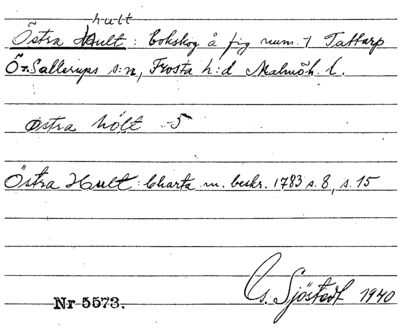 hult
Östra Hult: bokskog å fig num. 1 Tattarp
Ö. Sallerups s:n, Frosta h:d Malmöh. l.
östra hólt -5
Östra Hult: Charta m. beskr. 1783 s. 8, s. 15
Nr 5573.
G. Sjöstedt 1940